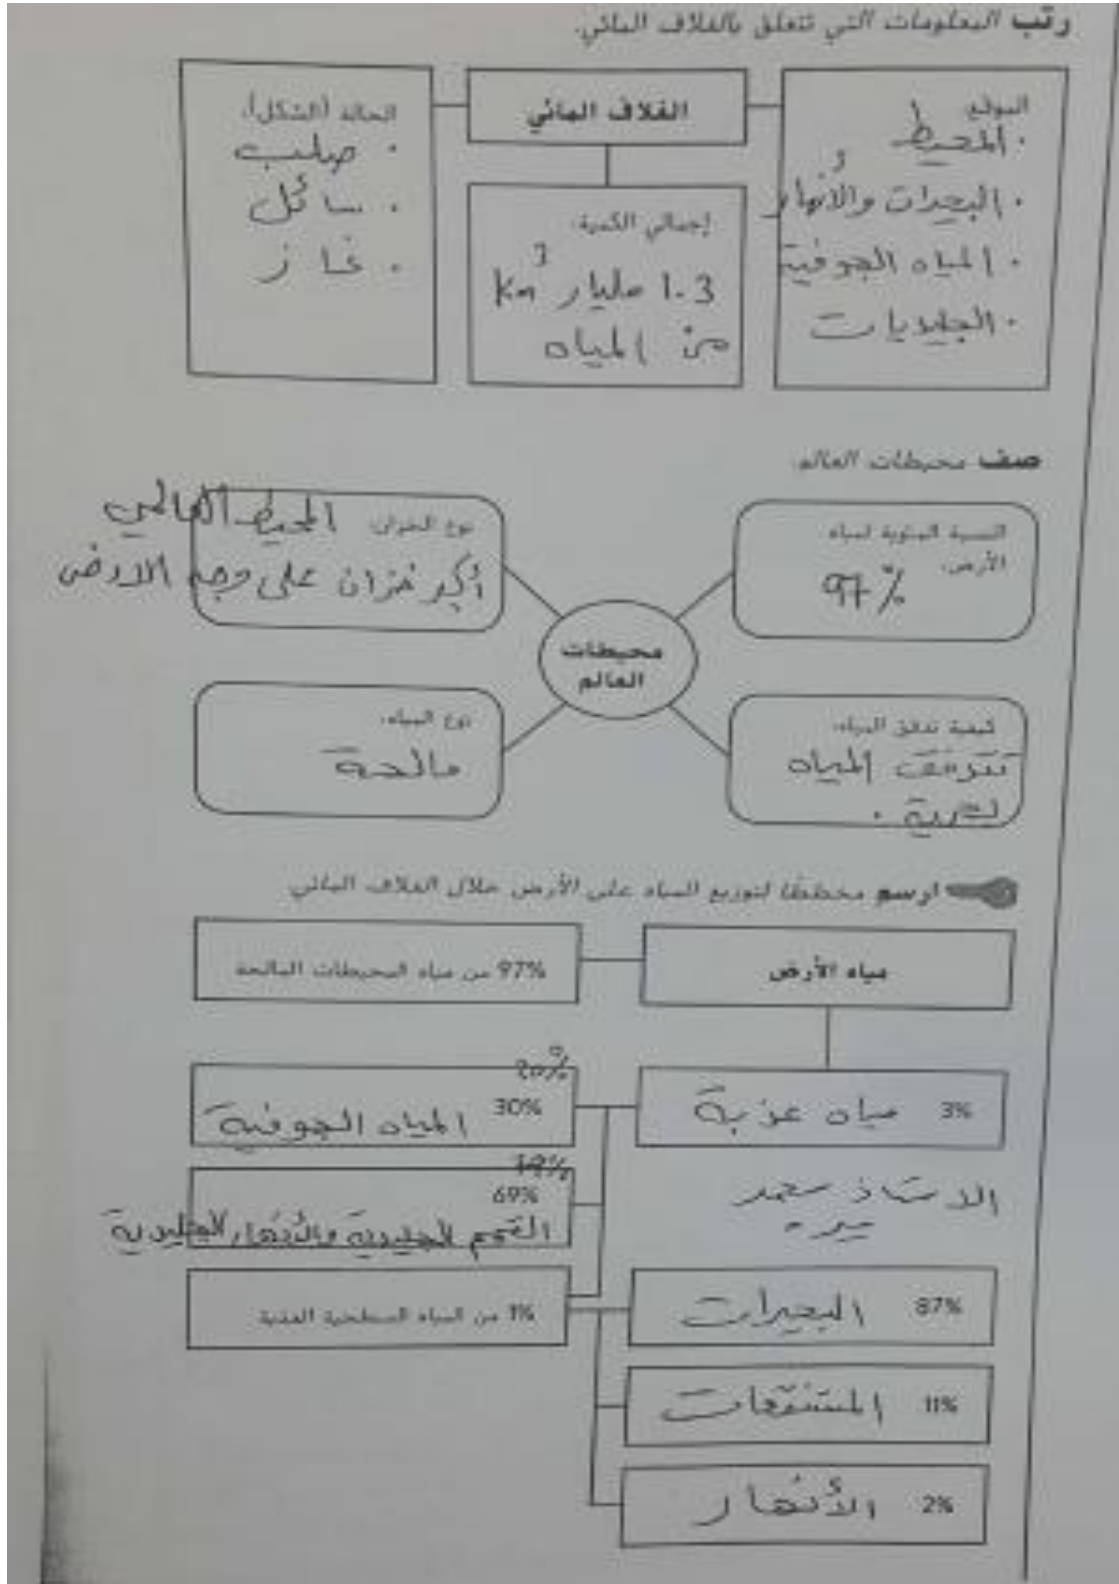 رتب المعلومات التي تتعلق بالغلاف المائي.
الغلاف المائي
الموقع:
• المحيط
• البحيرات والأنهار
• المياه الجوفية
• الجليديات
إجمالي الكمية:
1.3 مليار km³
من المياه
الحالة (الشكل):
• صلب
• سائل
• غاز
صف محيطات العالم.
محيطات
العالم
النسبة المئوية لمياه
الأرض:
97%
نوع الخزان: المحيط العالمي
أكبر خزان على وجه الارض
كيفية تدفق المياه:
تتدفق المياه
بحرية .
نوع المياه:
مالحة
ارسم مخططًا لتوزيع المياه على الأرض خلال الغلاف المائي.
مياه الأرض
97% من مياه المحيطات المالحة
3% مياه عذبة
30% المياه الجوفية
69%
القمم الجليدية والأنهار الجليدية
الاستاذ
1% من المياه السطحية العذبة
87% البحيرات
11% المستنقعات
2% الأنهار